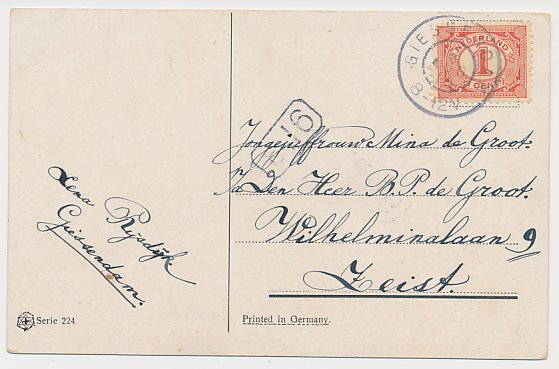 Lena Rijsdijk
Giessendam.
Serie 224
GIES
8-12V
NEDERLAND
1
CENT
Jongejuffrouw Mina de Groot.
p/a Den Heer B.P. de Groot.
Wilhelminalaan 9
Zeist.
Printed in Germany.